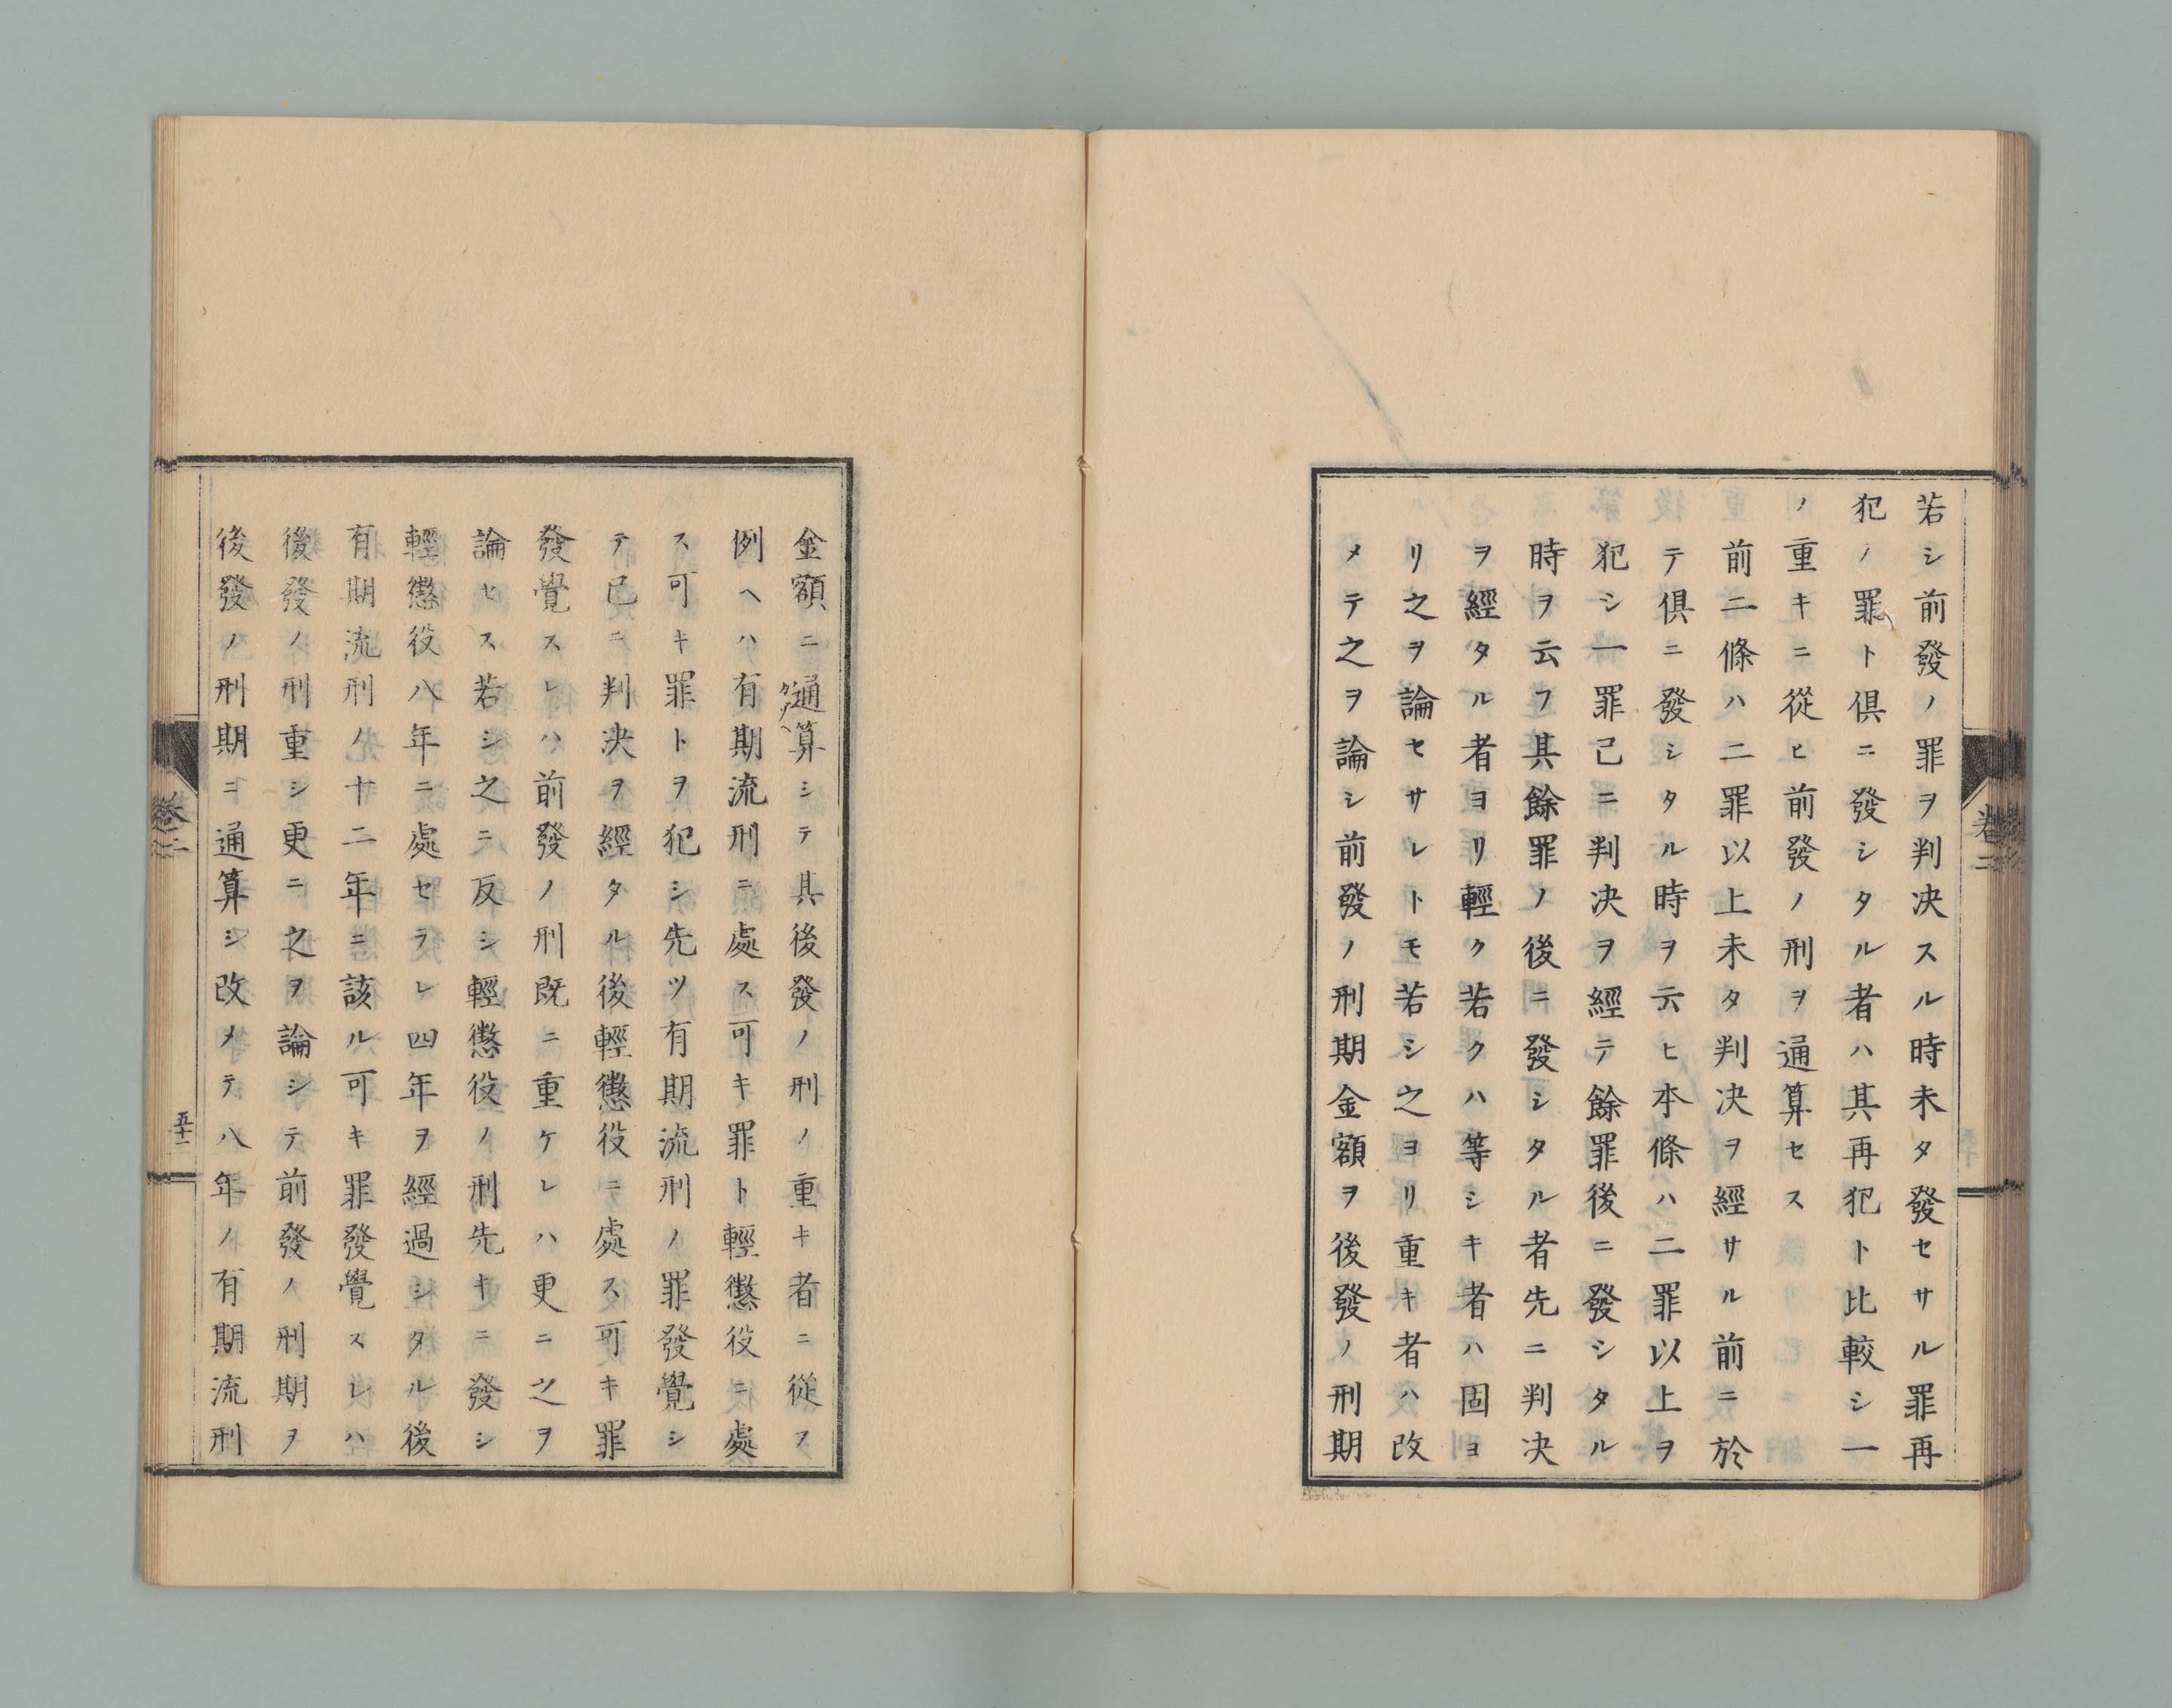 若シ前發ノ罪ヲ判决スル時未タ發セサル罪再
犯ノ罪ト俱ニ發シタル者ハ其再犯ト比較シ一
ノ重キニ從ヒ前發ノ刑ヲ通算セス
前二條ハ二罪以上未タ判决ヲ經サル前ニ於
テ俱ニ發シタル時ヲ云ヒ本條ハ二罪以上ヲ
犯シ一罪已ニ判决ヲ經テ餘罪後ニ發シタル
時ヲ云フ其餘罪ノ後ニ發シタル者先ニ判决
ヲ經タル者ヨリ輕ク若クハ等シキ者ハ固ヨ
リ之ヲ論セサレトモ若シ之ヨリ重キ者ハ改
メテ之ヲ論シ前發ノ刑期金額ヲ後發ノ刑期
卷二
金額ニ通算シテ其後發ノ刑ノ重キ者ニ從フ
カゾヘ
例ヘハ有期流刑ニ處ス可キ罪ト輕懲役ニ處
ス可キ罪トヲ犯シ先ツ有期流刑ノ罪發覺シ
テ已ニ判决ヲ經タル後輕懲役ニ處ス可キ罪
發覺スレハ前發ノ刑既ニ重ケレハ更ニ之ヲ
論セス若シ之ニ反シ輕懲役ノ刑先キニ發シ
輕懲役八年ニ處セラレ四年ヲ經過シタル後
有期流刑ノ十二年ニ該ル可キ罪發覺スレハ
後發ノ刑重シ更ニ之ヲ論シテ前發ノ刑期ヲ
後發ノ刑期ニ通算シ改メテ八年ノ有期流刑
卷二
五十一